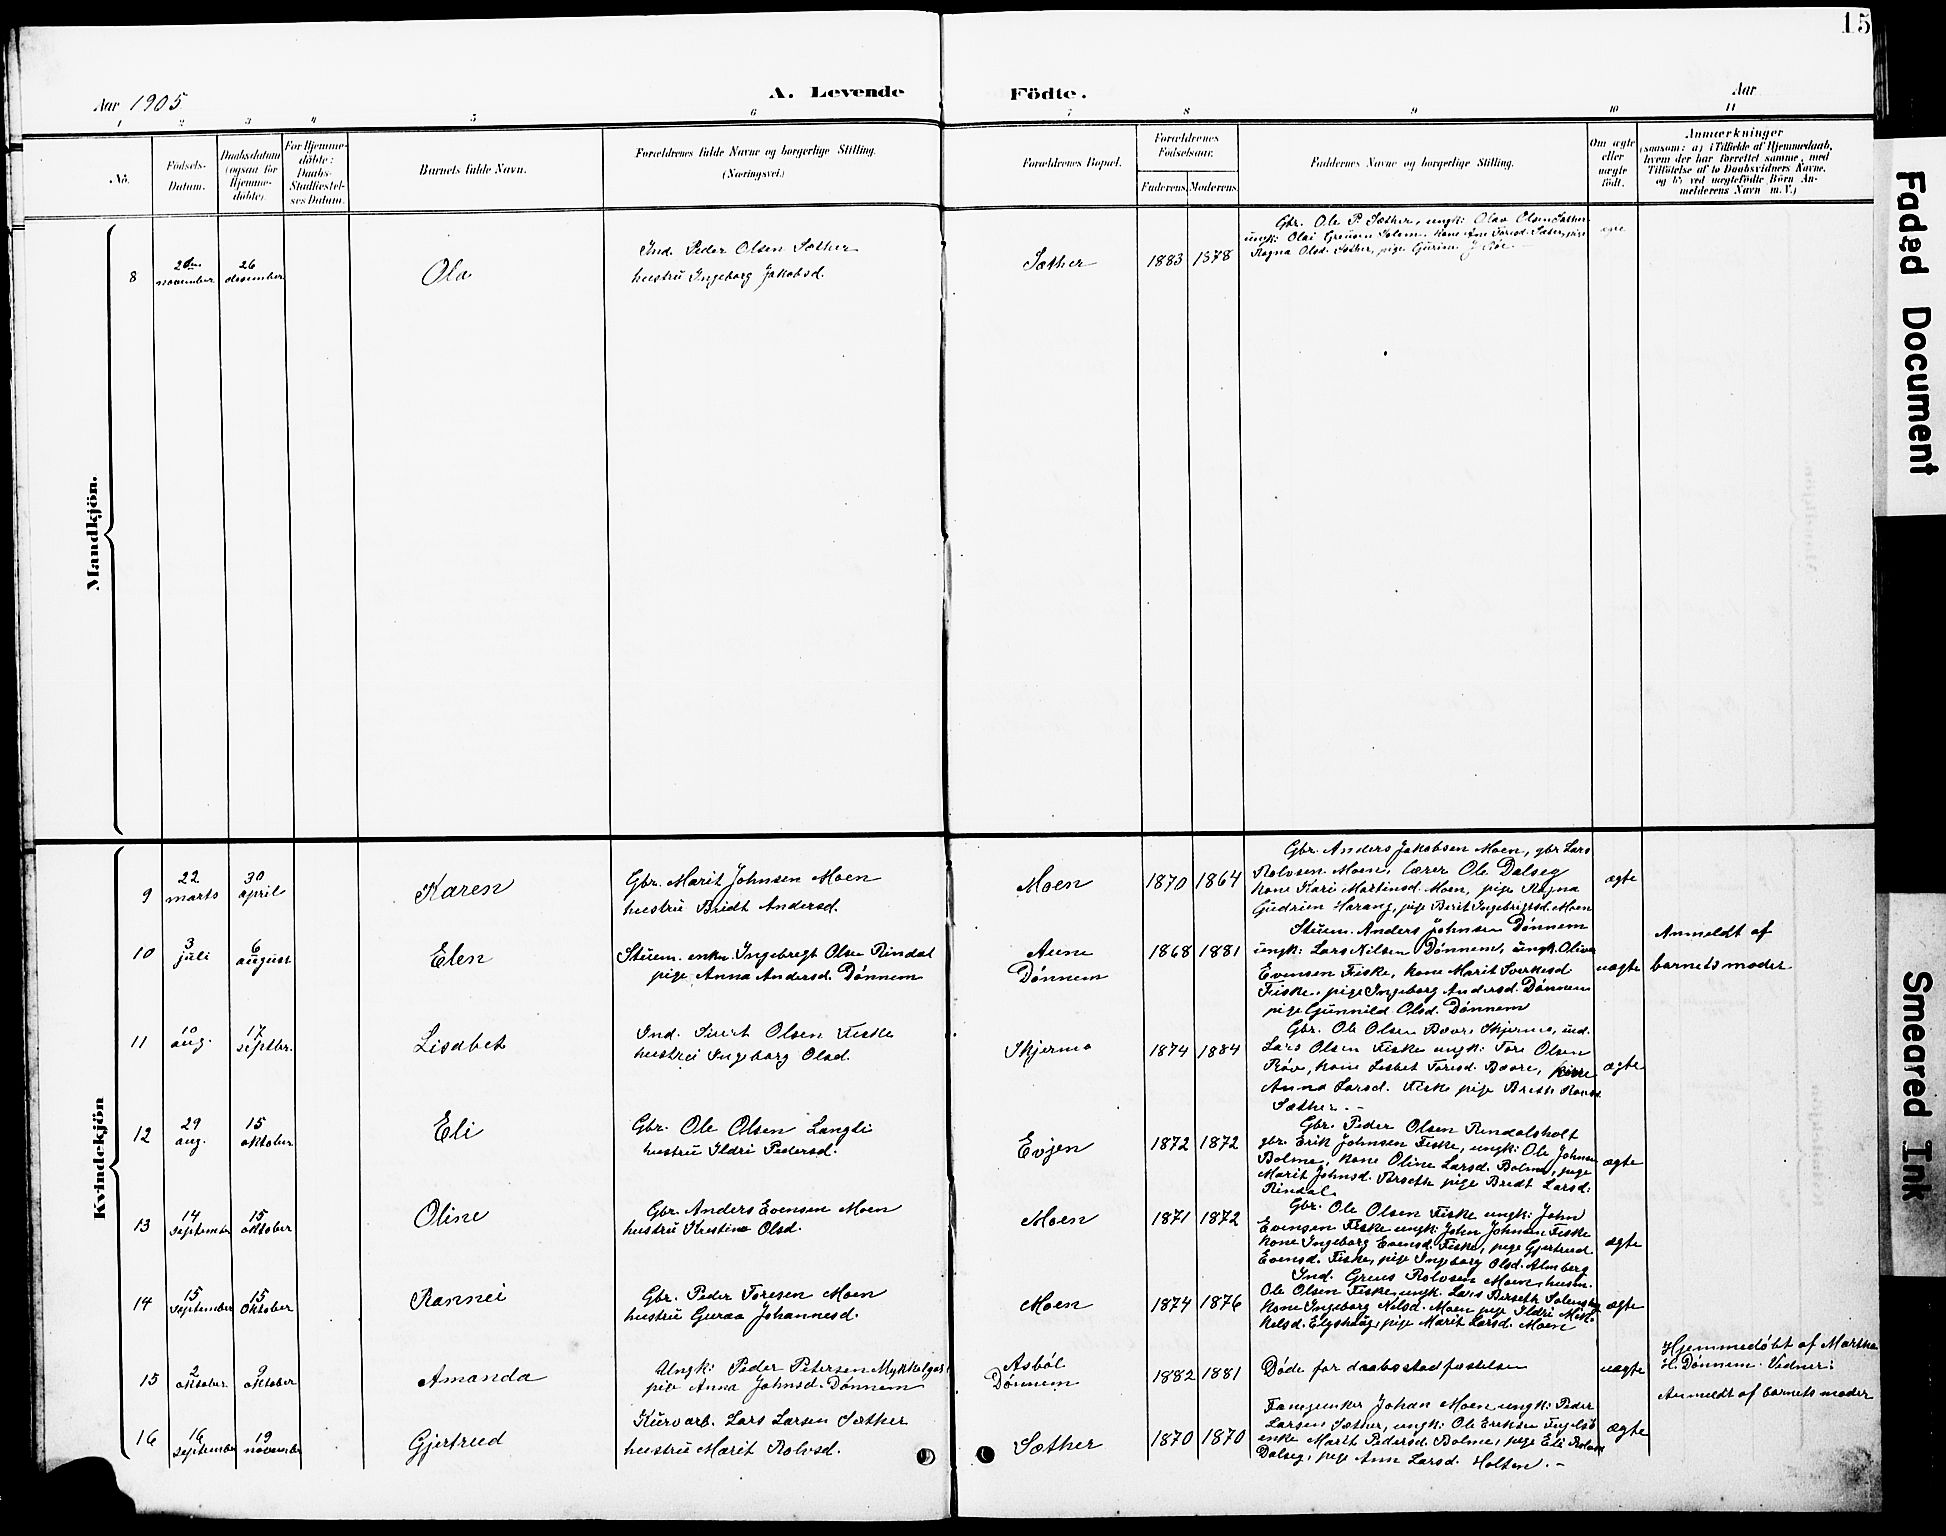 15
Aar 1905
A. Levende Födte.
Aar
1 2 3 4 5 6 7 8 9 10 11
No.
Födsels-
Datum.
Daabsdatum
(ogsaa for
Hjemme-
döbte).
For Hjemme-
döbte:
Daabs-
Stadfæstel-
ses Datum.
Barnets fulde Navn.
Forældrenes fulde Navne og borgerlige Stilling.
(Næringsvei.)
Forældrenes Bopæl.
Forældrenes
Fødselsaar.
Faderens. Moderens.
Faddernes Navne og borgerlige Stilling.
Om ægte
eller
uægte
født.
Anmærkninger
(saasom: a) i Tilfælde af Hjemmedaab,
hvem der har forrettet samme, med
Tilföielse af to Daabsvidners Navne,
og b) ved uægtefödte Börn An-
melderens Navn m. V.)
Mandkjön.
8
november
26
desember
Ola
Ind. Peder Olsen Sæther
hustru Ingeborg Jakobsd.
Sæther
1883 1878
Gbr. Ole P. Sæther, ungk: Olav Olsen Sæther
ungk: Olai Solem, kone
Ragna Olsd. Sæther, pige Gurine
Kvindekjön
9
22
marts
30
april
Karen
Gbr. Marit Johnsen Moen
hustru Bridt Andersd.
Moen
1870 1864
Gbr. Anders Jakobsen Moen, gbr Lars
Rolvsen Moen, lærer Ole Dalseg
kone Kari Martinsd. Moen, pige Ragna
Gudrun Harang, pige Berit Ingebrigtsd. Moen
ægte
10
3
juli
6
august
Elen
Stuem. enkm. Ingebregt Olsen Rindal
pige Anna Andersd. Dønnem
Aune
Dønnem
1868 1881
Stuem. Anders Johnsen Dønnem
ungk: Lars Nilsen Dønnem, ungk. Oliver
Evensen Fiske, kone Marit Sverkesd
Fiske, pige Ingeborg Andersd. Dønnem
pige Gunnild Olsd. Dønnem
uægte
Anmeldt af
barnets moder
11
10
aug.
17
septbr.
Lisabet
Ind. Sivert Olsen Fiske
hustru Ingeborg Olsd.
Skjermo
1874 1884
Gbr. Ole Olsen Bævre Skjermo, ind.
Lars Olsen Fiske ungk: Tore Olsen
Røv, kone Lisbet Toresd. Bævre,
Anna Larsd. Fiske pige Breth
Sæther. -
ægte
12
29
aug.
15
oktober
Eli
Gbr. Ole Olsen Langli
hustru Ildri Pedersd.
Evjen
1872 1872
Gbr. Peder Olsen Rindalsholt
gbr. Erik Johnsen Fiske, ungk: Ole Johnsen
Bolme, kone Oline Larsd. Bolme, pige
Marit Johnsd. pige Bredt Larsd.
Rindal
ægte
13
14
september
15
oktober
Oline
Gbr Anders Evensen Moen
hustru Kristine Olsd.
Moen
1871 1872
Gbr. Ole Olsen Fiske ungk: John
Evensen Fiske ungk: John Johnsen Fiske
kone Ingeborg Evensd. Fiske, pige Gjertrud
Evensd. Fiske, pige Ingeborg Olsd. Almberg
ægte
14
15
september
15
Oktober
Rannei
Gbr. Peder Toresen Moen
hustru Guraa Johannesd.
Moen
1874 1876
Ind. Greus Rolvsen Moen, husm.
Ole Olsen Fiske, ungk. Lars Berseth
kone Ingeborg Nilsd. Moen pige Ildri Mik-
kelsd. Elgshaug, pige Marit Larsd. Moen
ægte
15
2
oktober
9
oktober
Amanda
Ungk: Peder Petersen
pige Anna Johnsd. Dønnem
Asbøl
Dønnem
1882 1881
Døde før daabsstadfæstelsen
uægte
Hjemmedøbt af Martha
H. Dønnem. Vidner:
Anmeldt af barnets moder
16
16
september
19
november
Gjertrud
Kurvarb. Lars Larsen Sæther
hustru Marit Rolvsd.
Sæther
1870 1870
Johan Moen ungk: Peder
Larsen Sæther, ungk: Ole Eriksen
enke Marit Pedersd. Bolme, pige Eli
Dalseg, pige Ann Larsd. Holten. -
ægte
Faded Document
Smeared Ink